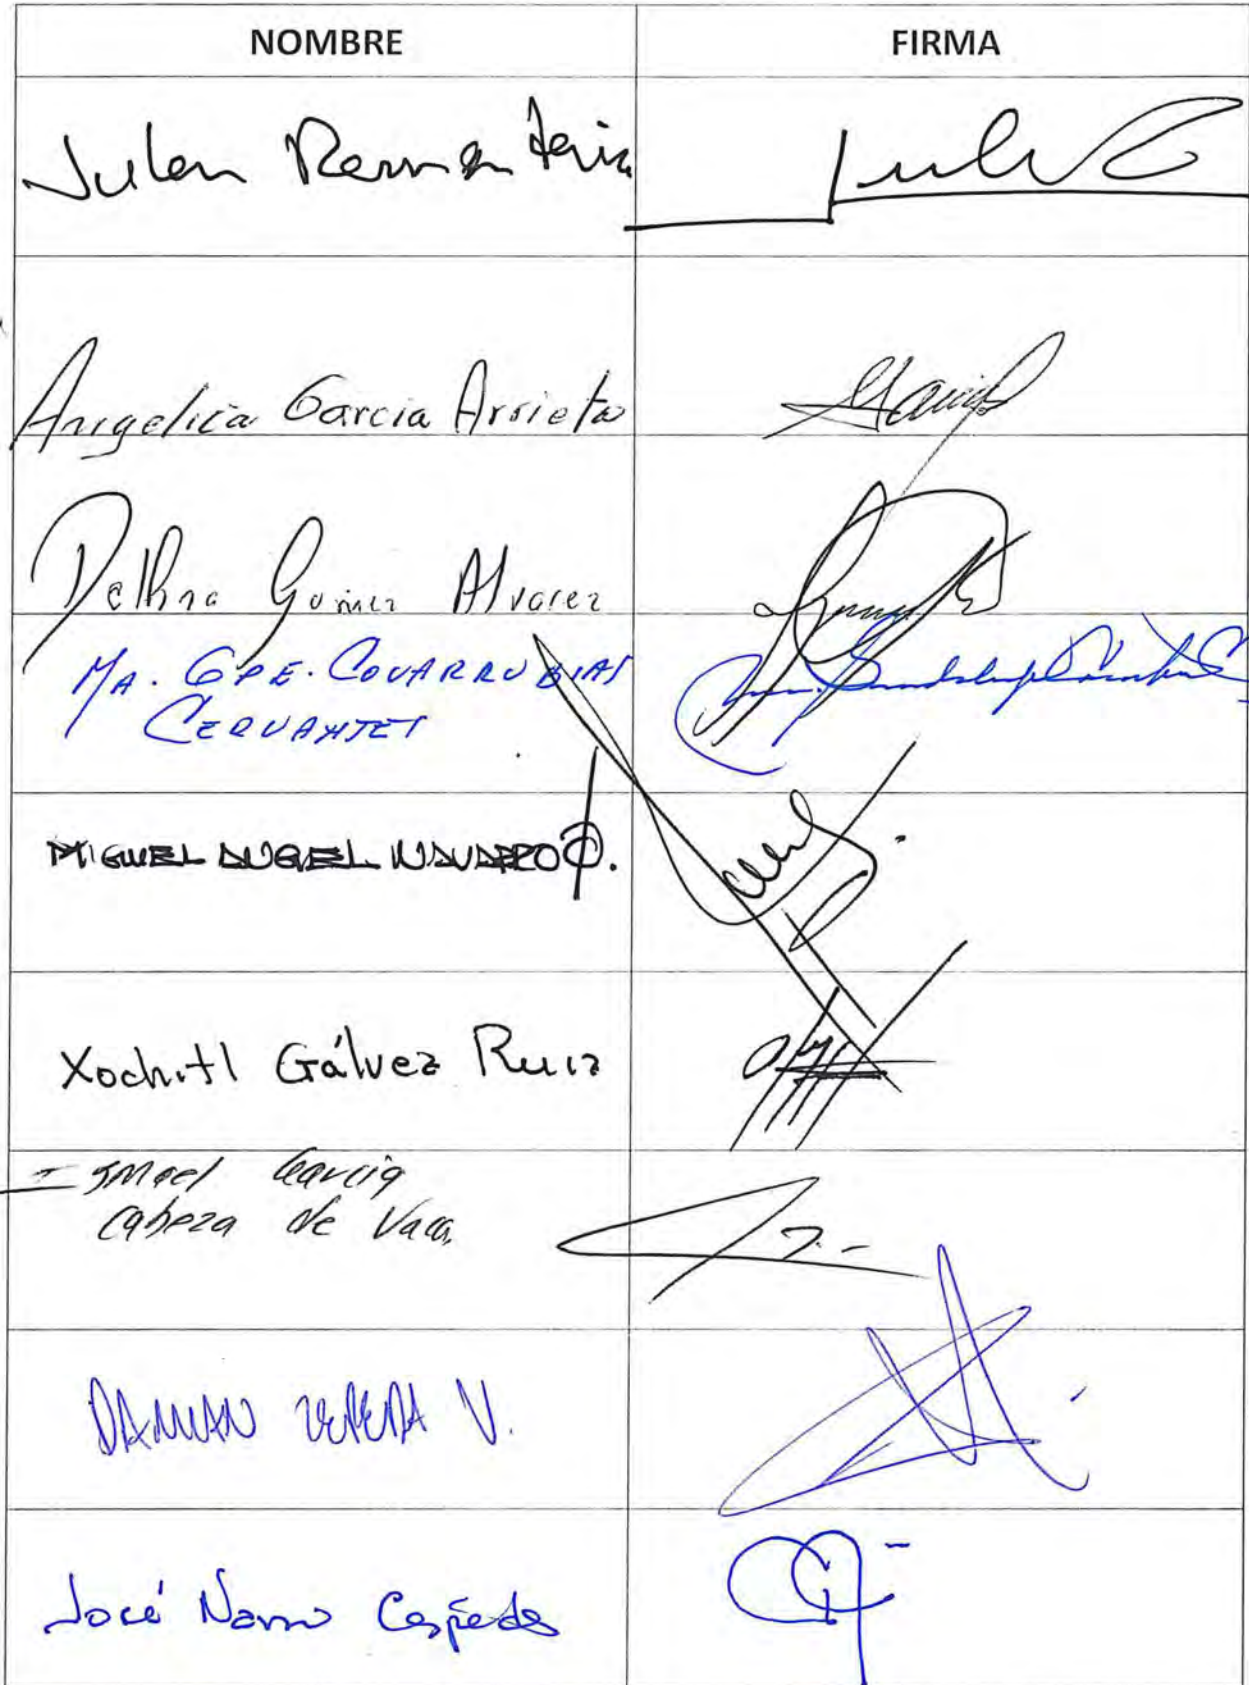 NOMBRE FIRMA
Julen Rementeria
Angelica Garcia Arrieta
Delfina Gomez Alvarez
MA. GPE. COVARRUBIAS
CERVANTES
MIGUEL ANGEL NAVARRO Q.
Xochitl Gálvez Ruiz
Ismael Garcia
Cabeza de Vaca
DAMIAN ZEPEDA V.
José Narro Céspedes